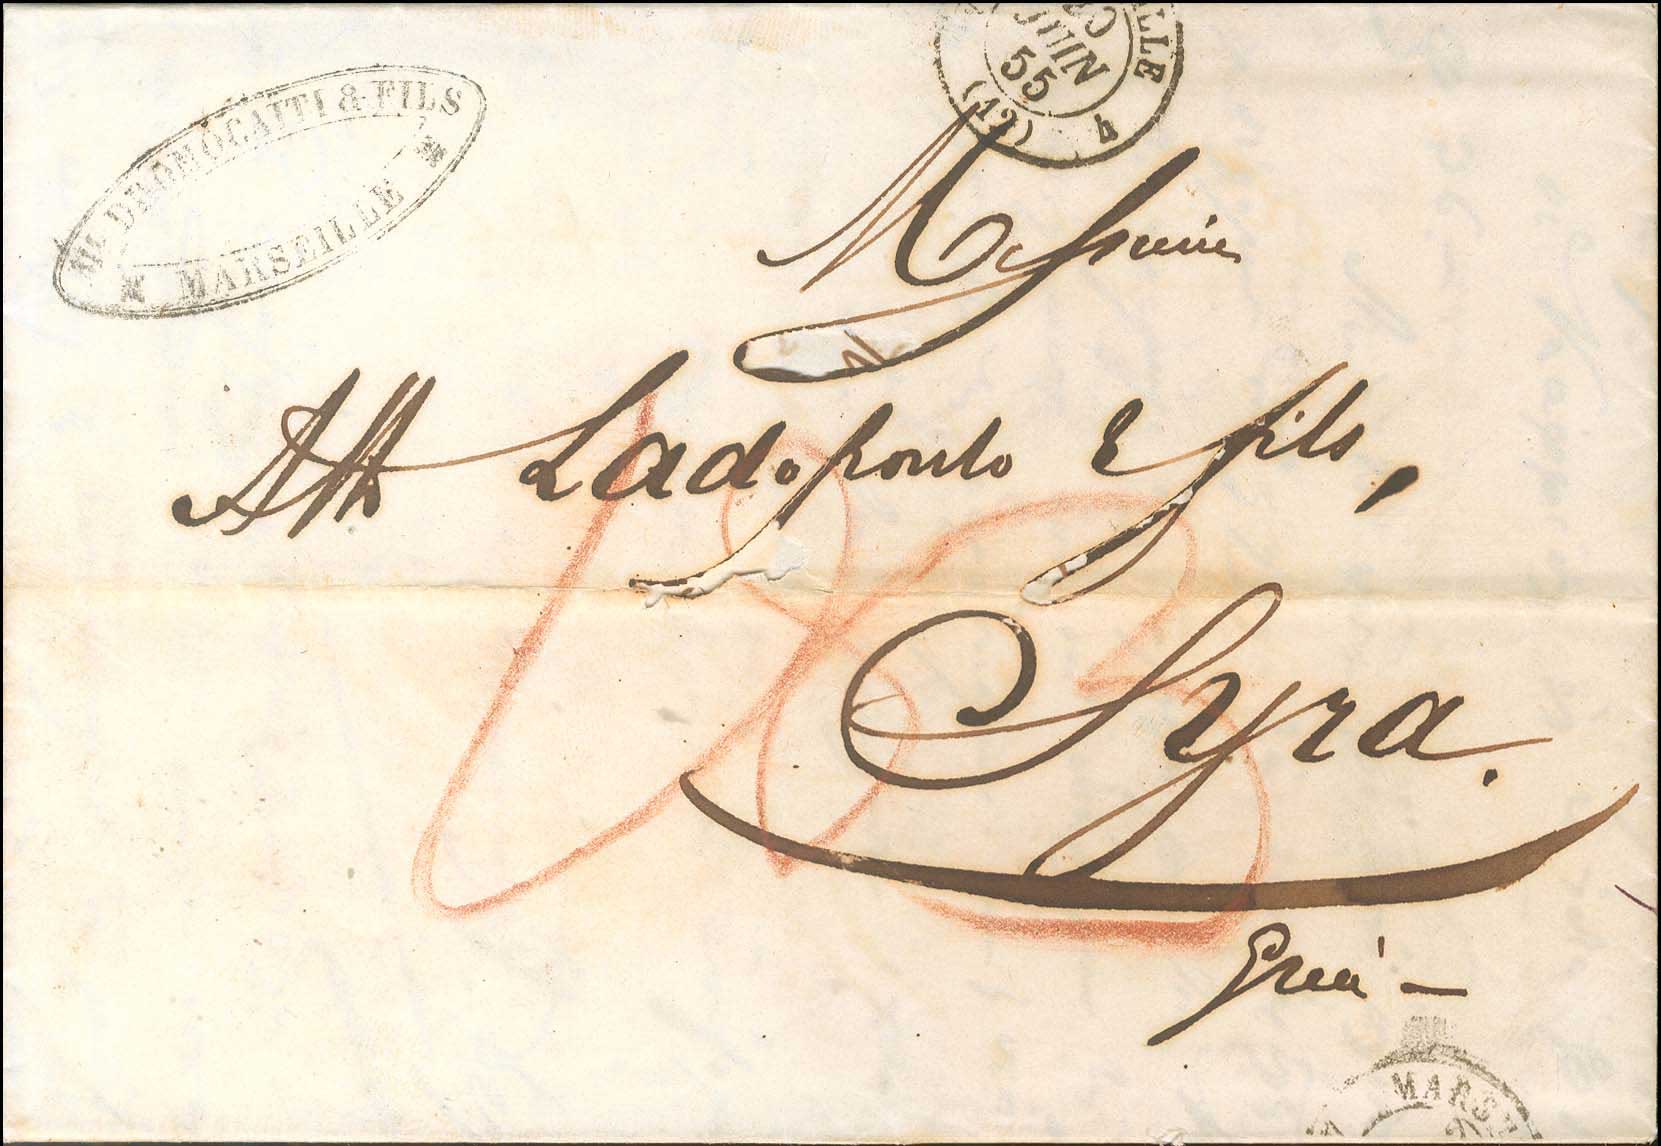 M. DROMOCAITI & FILS
MARSEILLE
ILLE
JUIN
55
(12)
4
Messieurs
Ath Ladopoulo & fils,
Syra.
Grèce
183
MARS